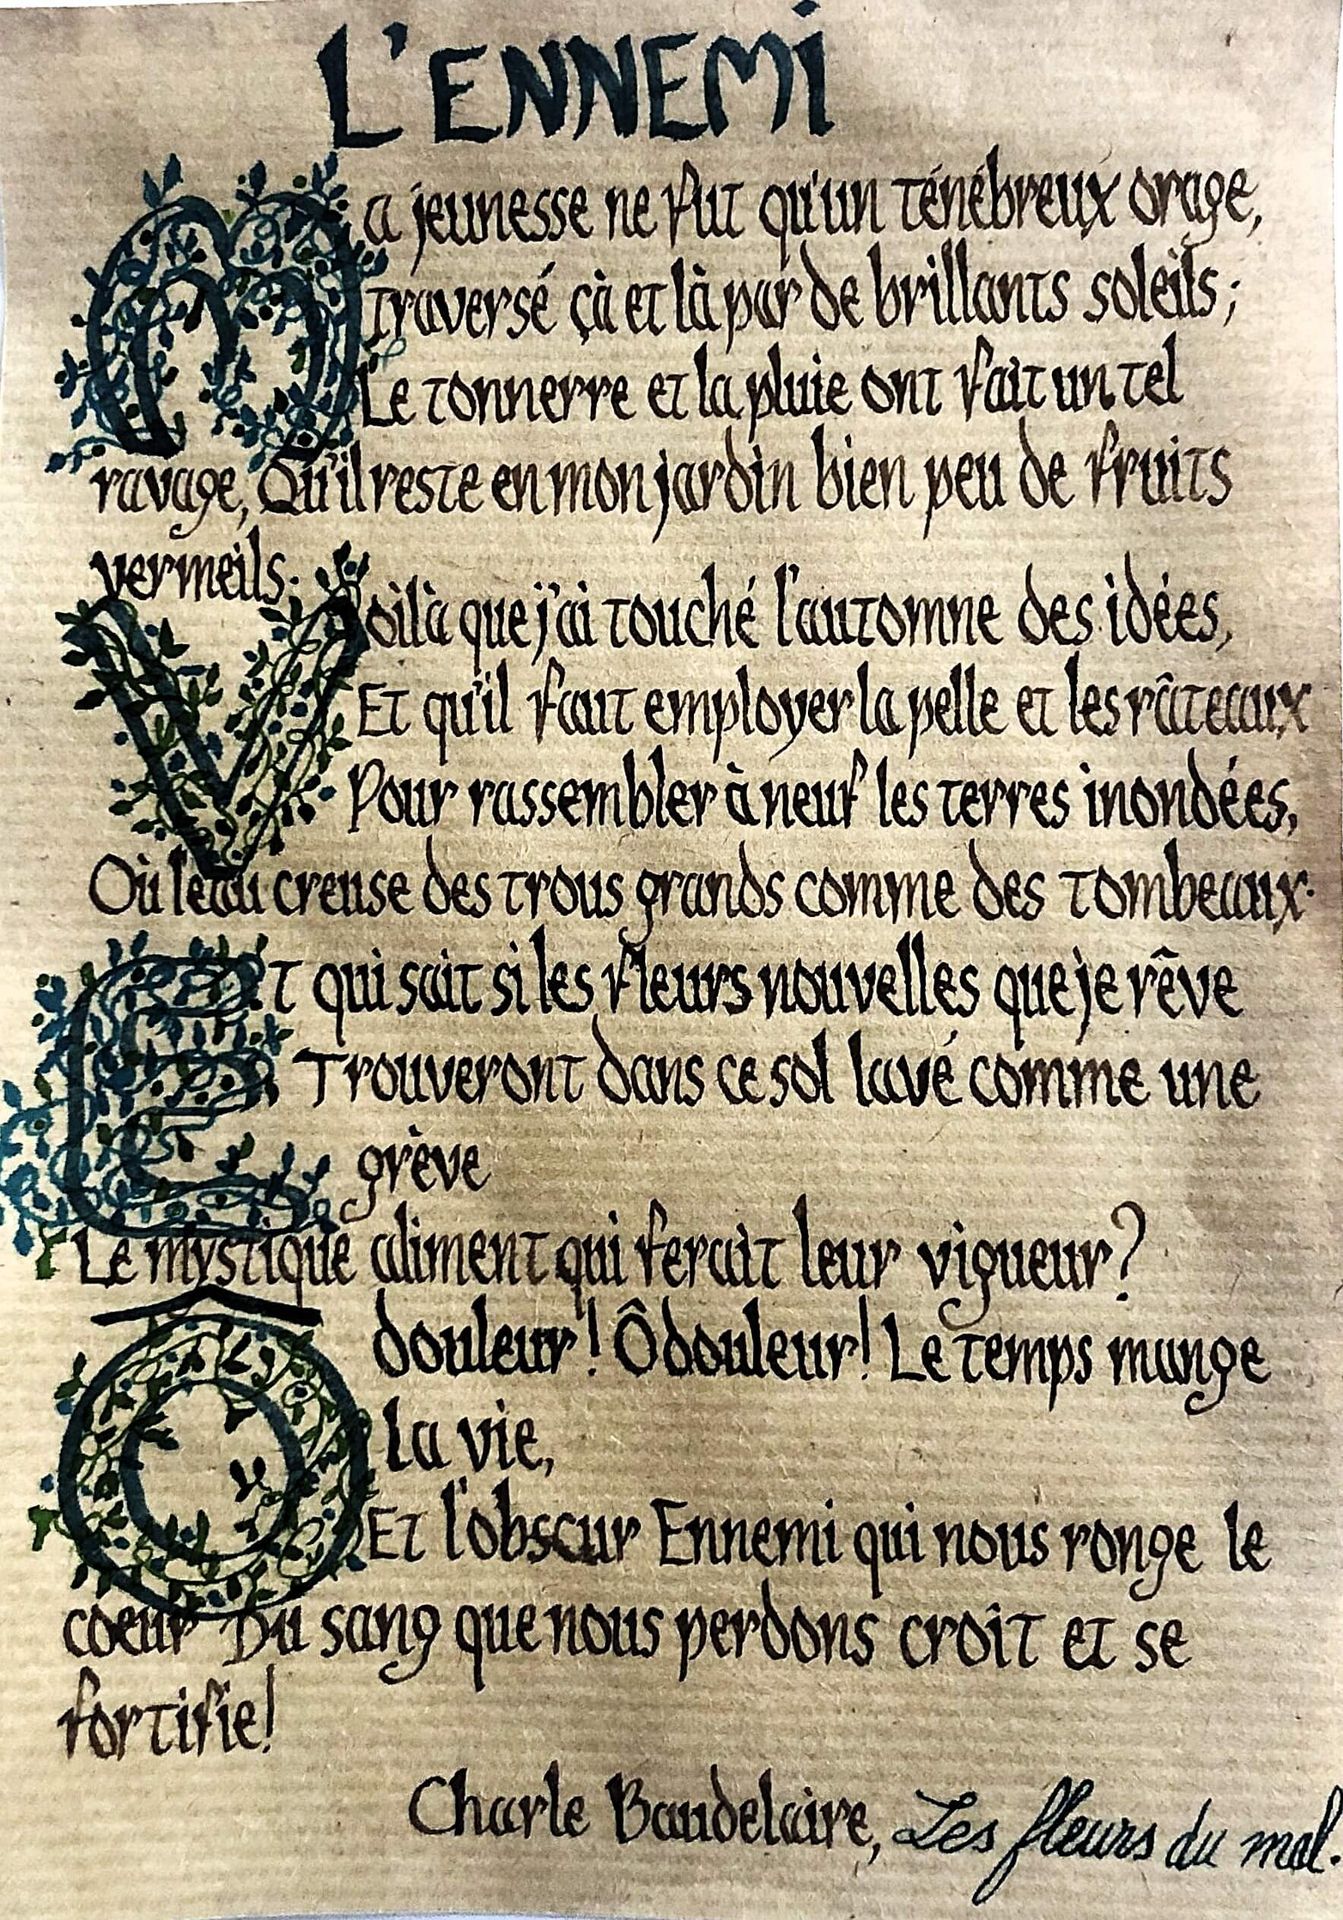 L'ENNEMi
Ma jeunesse ne fut qu'un ténébreux orage,
Traversé çà et là par de brillants soleils ;
Le tonnerre et la pluie ont fait un tel
ravage, Qu'il reste en mon jardin bien peu de fruits
vermeils.
Voilà que j'ai touché l'automne des idées,
Et qu'il faut employer la pelle et les râteaux
Pour rassembler à neuf les terres inondées,
Où l'eau creuse des trous grands comme des tombeaux.
Et qui sait si les fleurs nouvelles que je rêve
Trouveront dans ce sol lavé comme une
grève
Le mystique aliment qui ferait leur vigueur ?
Ô douleur ! Ô douleur ! Le temps mange
la vie,
Et l'obscur Ennemi qui nous ronge le
coeur Du sang que nous perdons croît et se
fortifie !
Charle Baudelaire, Les fleurs du mal.